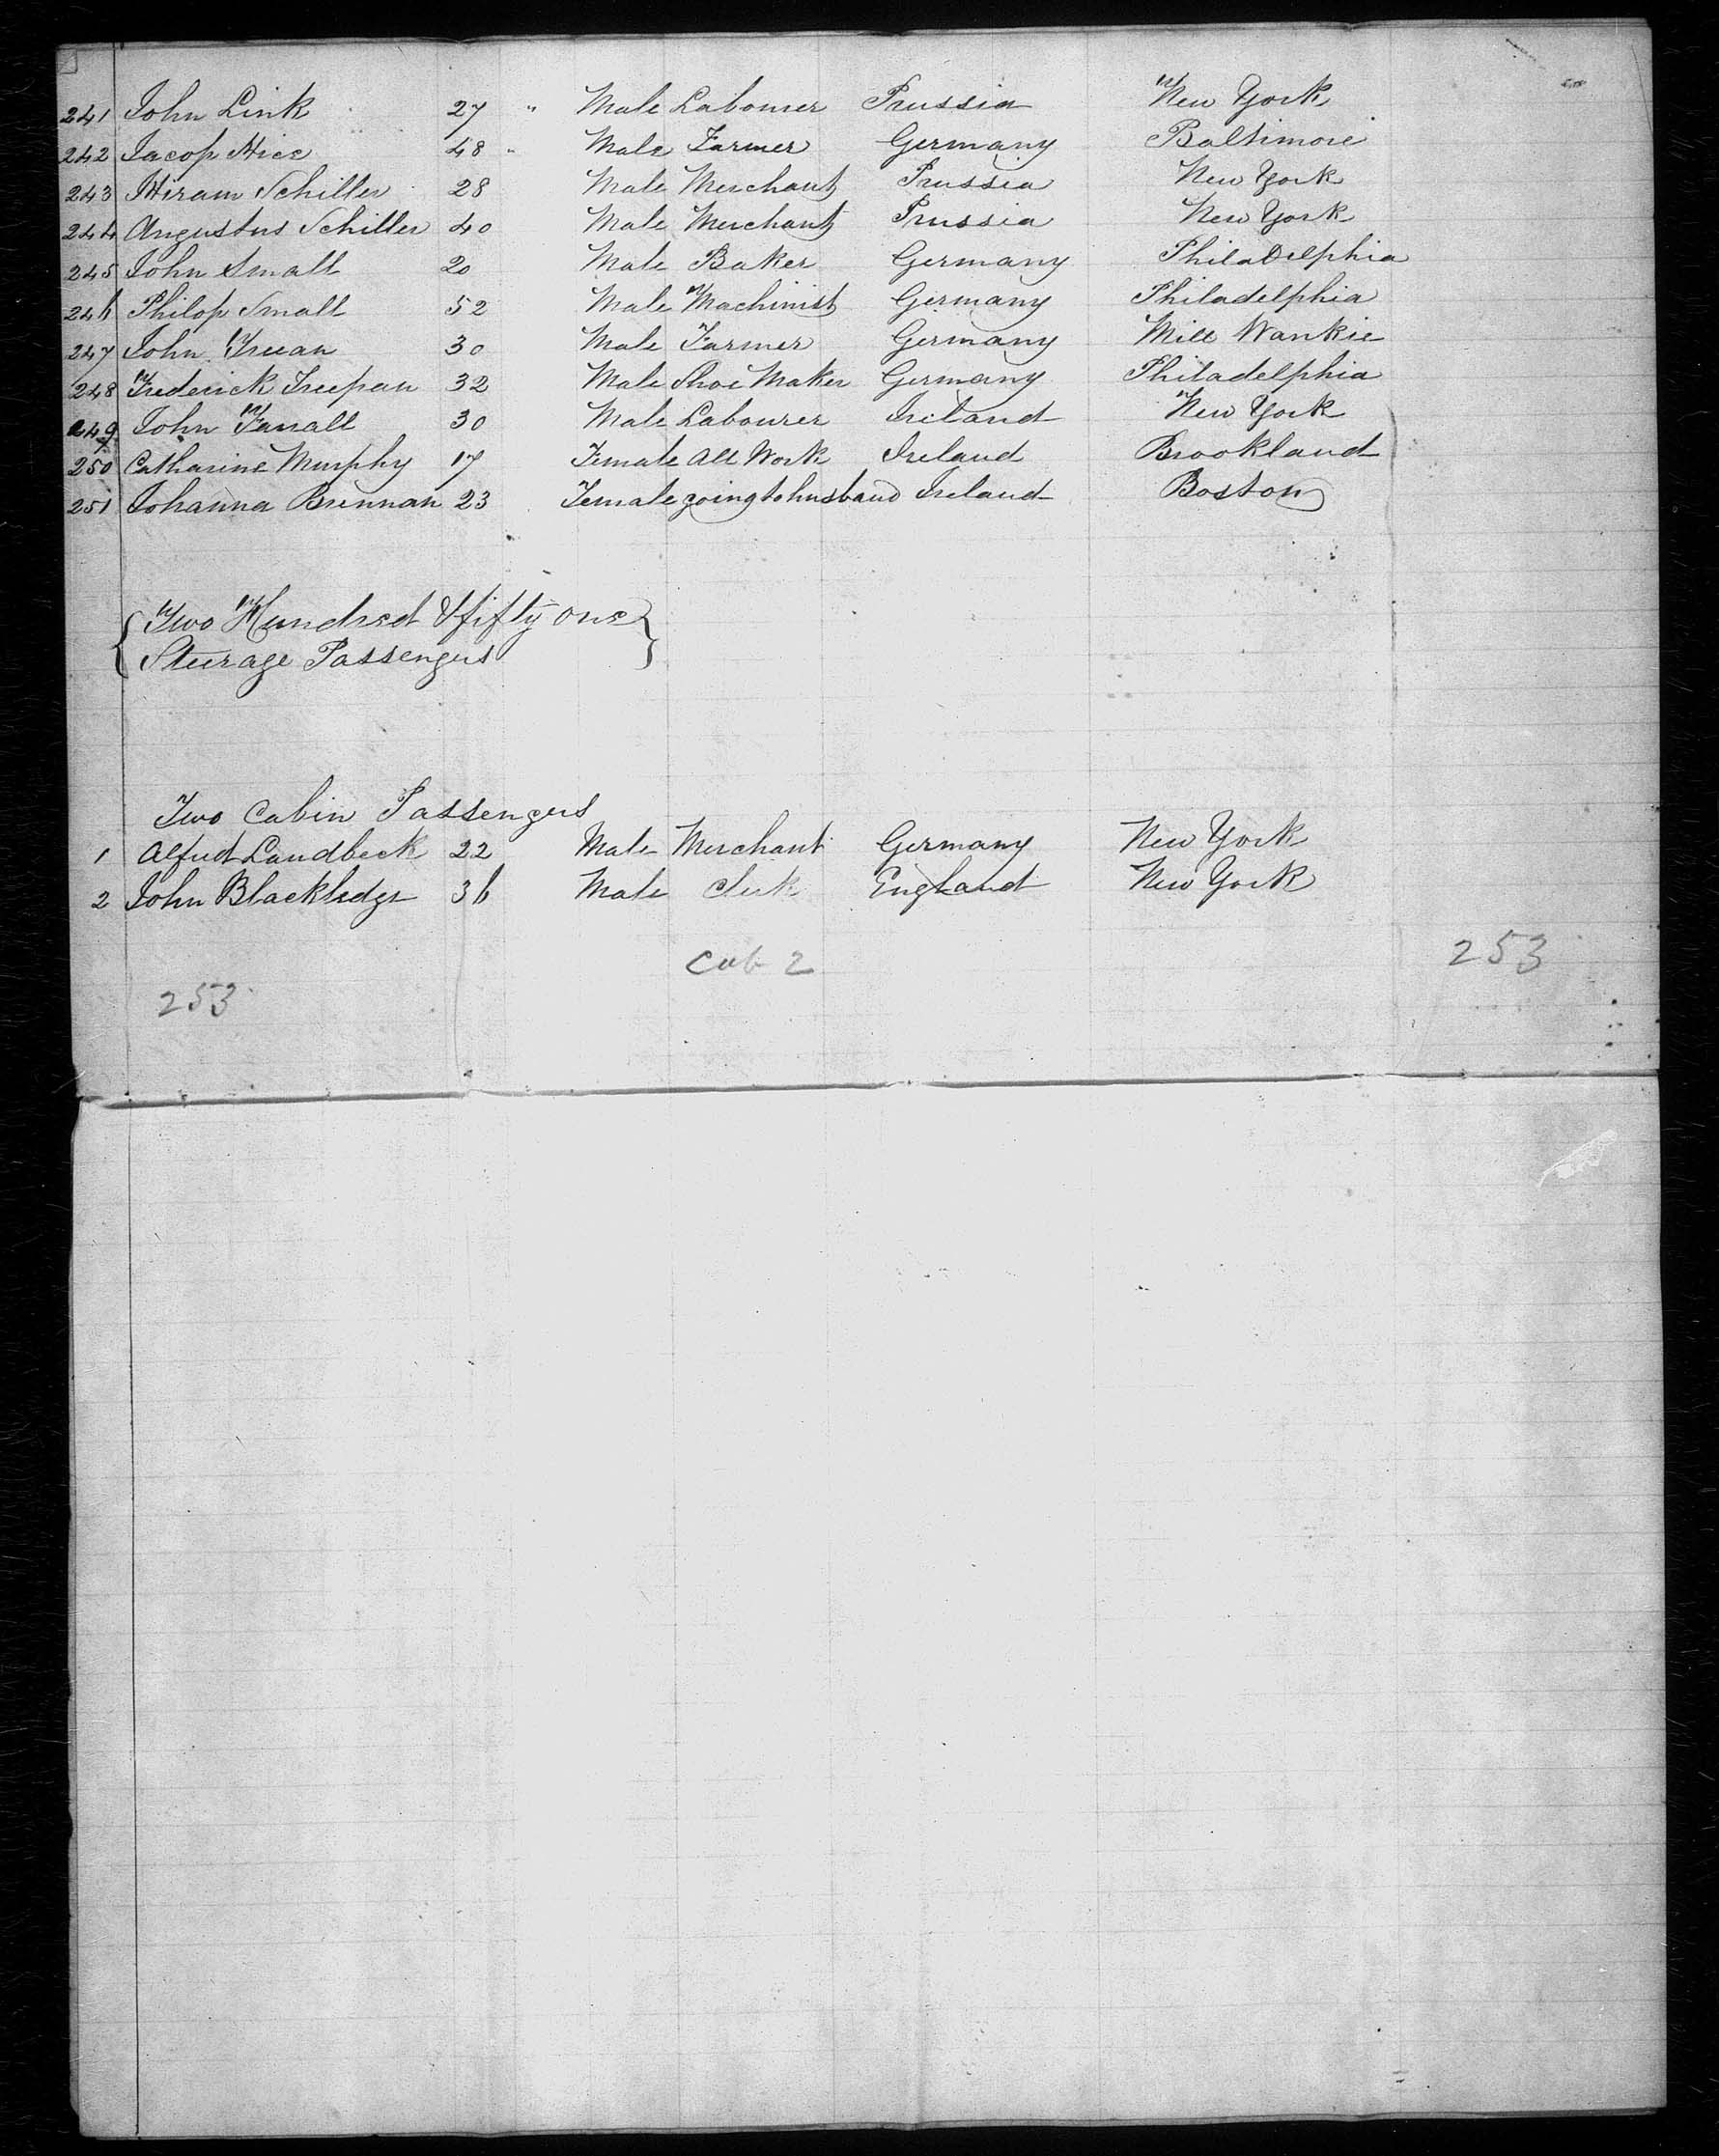 241 John Link 27 " Male Labourer Prussia New York
242 Jacop Hice 48 " Male Farmer Germany Baltimore
243 Hiram Schiller 28 Male Merchant Prussia New York
244 Augustus Schiller 40 Male Merchant Prussia New York
245 John Small 20 Male Baker Germany Philadelphia
246 Philop Small 52 Male Machinist Germany Philadelphia
247 John 30 Male Farmer Germany Mill Wankie
248 Frederick Treepan 32 Male Shoe Maker Germany Philadelphia
249 John Farrall 30 Male Labourer Ireland New York
250 Catharine Murphy 17 Female All Work Ireland Brookland
251 Johanna Brennan 23 Female going to husband Ireland Boston
Two Hundred & fifty one
Steerage Passengers
Two Cabin Passengers
1 Alfred Landbeck 22 Male Merchant Germany New York
2 John Blackledge 36 Male Clerk England New York
Cab 2 253
253